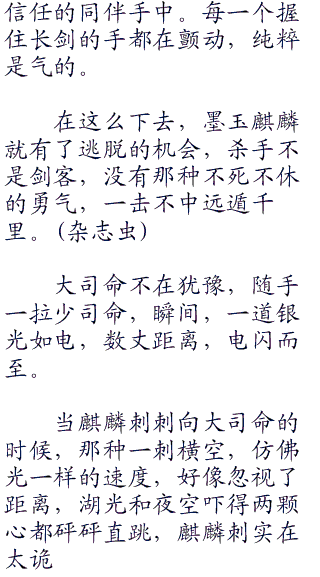 信任的同伴手中。每一个握
住长剑的手都在颤动，纯粹
是气的。
在这么下去，墨玉麒麟
就有了逃脱的机会，杀手不
是剑客，没有那种不死不休
的勇气，一击不中远遁千
里。(杂志虫)
大司命不在犹豫，随手
一拉少司命，瞬间，一道银
光如电，数丈距离，电闪而
至。
当麒麟刺刺向大司命的
时候，那种一刺横空，仿佛
光一样的速度，好像忽视了
距离，湖光和夜空吓得两颗
心都砰砰直跳，麒麟刺实在
太诡